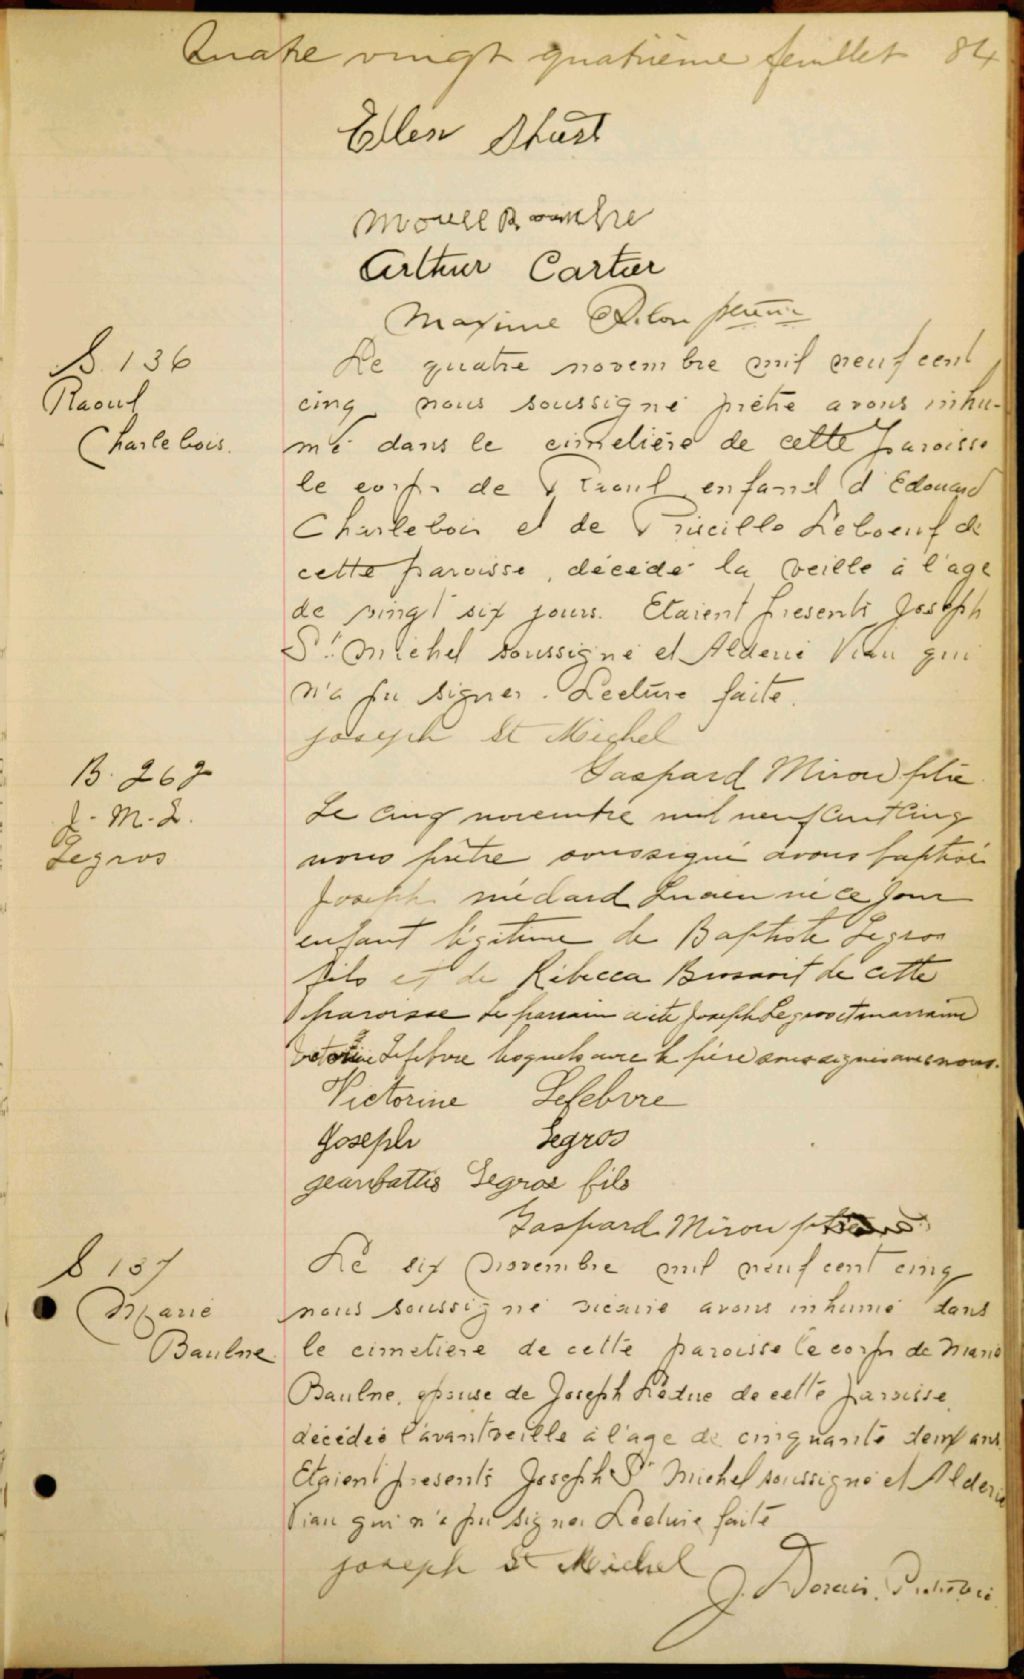 Quatre vingt quatrième feuillet 84
Ellen
Arthur Cartier
Maxime
S. 136
Raoul
Charlebois.
Le quatre novembre mil neuf cent
cinq nous soussigné prêtre avons inhu-
mé dans le cimetière de cette paroisse
le corps de Raoul enfant d'Edouard
Charlebois et de Priscille Leboeuf de
cette paroisse, décédé la veille à l'age
de vingt six jours. Etaient présents Joseph
St. Michel soussigné et Aldéric Viau qui
n'a pu signer. Lecture faite.
Joseph St Michel
Gaspard Miron ptre
B. 262
J. M. L.
Legros
Le cinq novembre mil neuf cent cinq
nous prêtre soussigné avons baptisé
Joseph médard Lucien né ce jour
enfant légitime de Baptiste Legros
fils et de Rébecca de cette
paroisse Le parrain a été Joseph Legros et marraine
Victorine Lefebvre lesquels avec le père soussignés avec nous.
Victorine Lefebvre
Joseph Legros
jeanbattis Legros fils
Gaspard Miron ptre
S 137
Marie
Baulne
Le six novembre mil neuf cent cinq
nous soussigné vicaire avons inhumé dans
le cimetière de cette paroisse le corps de Marie
Baulne, épouse de Joseph Léduc de cette paroisse
décédée l'avantveille à l'age de cinquante deux ans.
Etaient présents Joseph St Michel soussigné et Aldéric
Viau qui n'a pu signer Lecture faite
joseph St Michel
J.